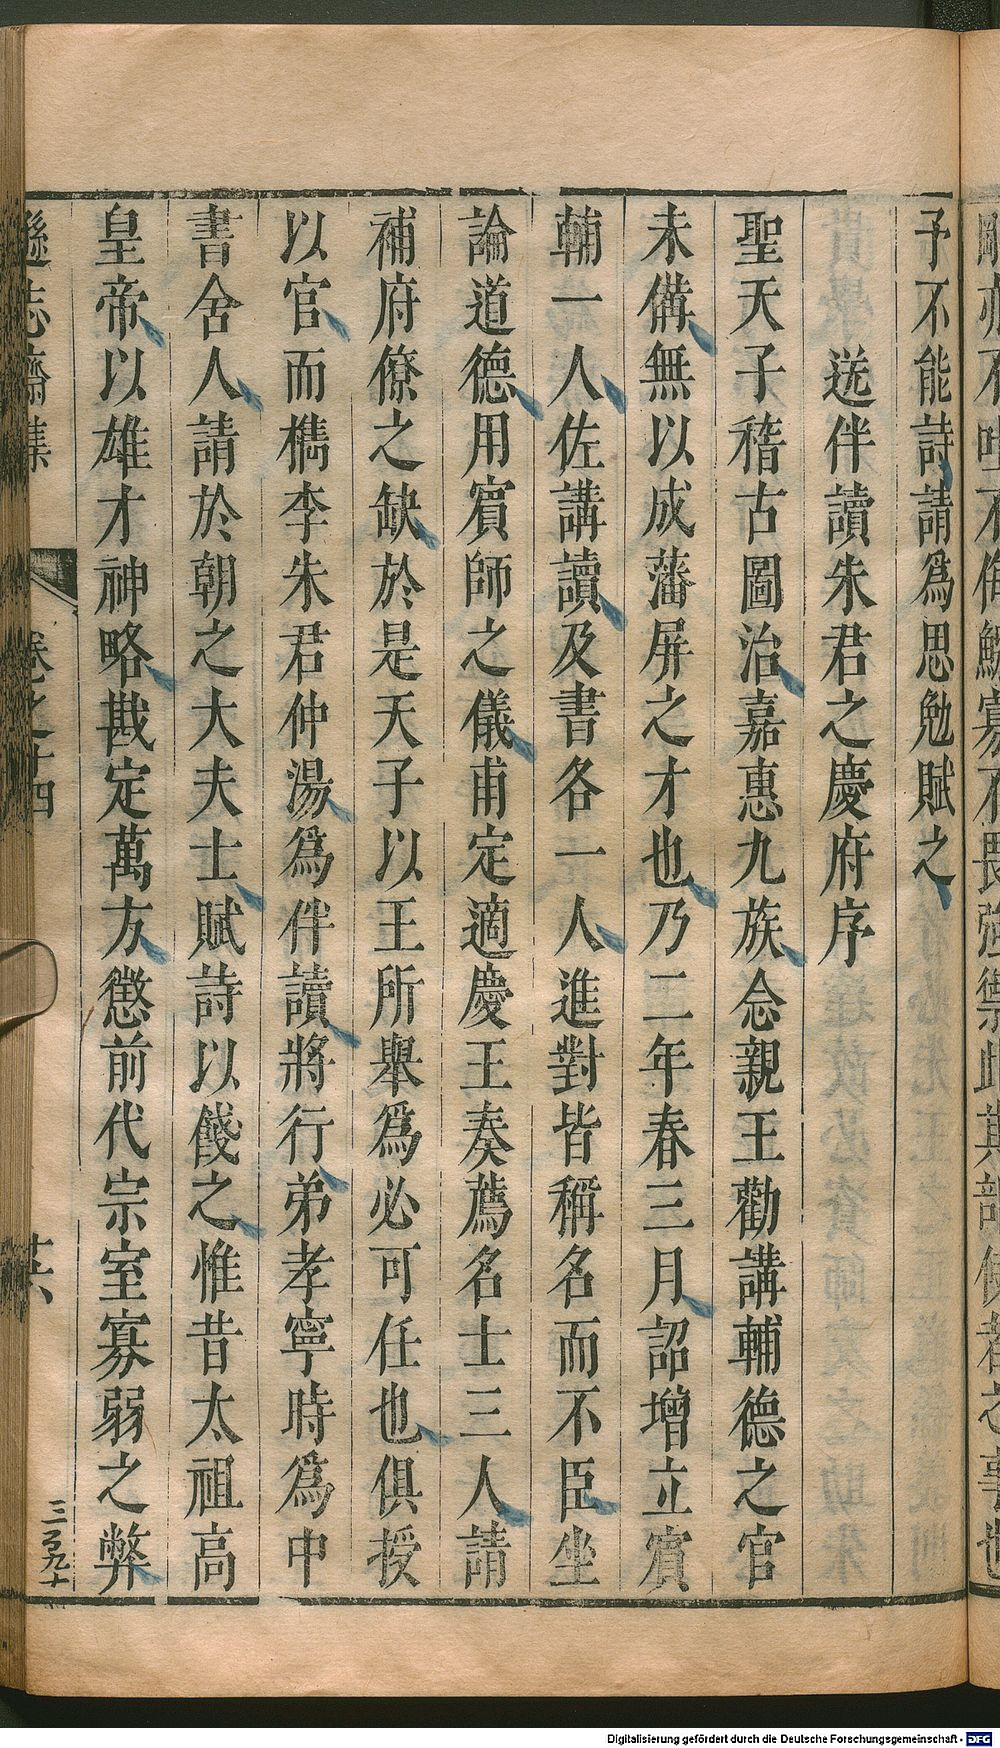 予不能詩請爲思勉賦之
送伴讀朱君之慶府序
聖天子稽古圖治嘉惠九族念親王勸講輔德之官
未備無以成藩屏之才也乃二年春三月詔增立賓
輔一人佐講讀及書各一人進對皆稱名而不臣坐
論道德用賓師之儀甫定適慶王奏薦名士三人請
補府僚之缺於是天子以王所舉爲必可任也俱授
以官而檇李朱君仲湯爲伴讀將行弟孝寧時爲中
書舍人請於朝之大夫士賦詩以餞之惟昔太祖高
皇帝以雄才神略戡定萬方懲前代宗室寡弱之弊
遜志齋集 卷之十四 廿六
三百九十
Digitalisierung gefördert durch die Deutsche Forschungsgemeinschaft - DFG